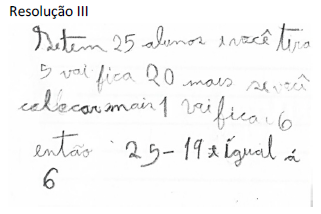 Resolução III
Se tem 25 alunos e você tira
5 vai fica 20 mais se você
colocar mais 1 vai fica 6
então 25-19 e igual á
6